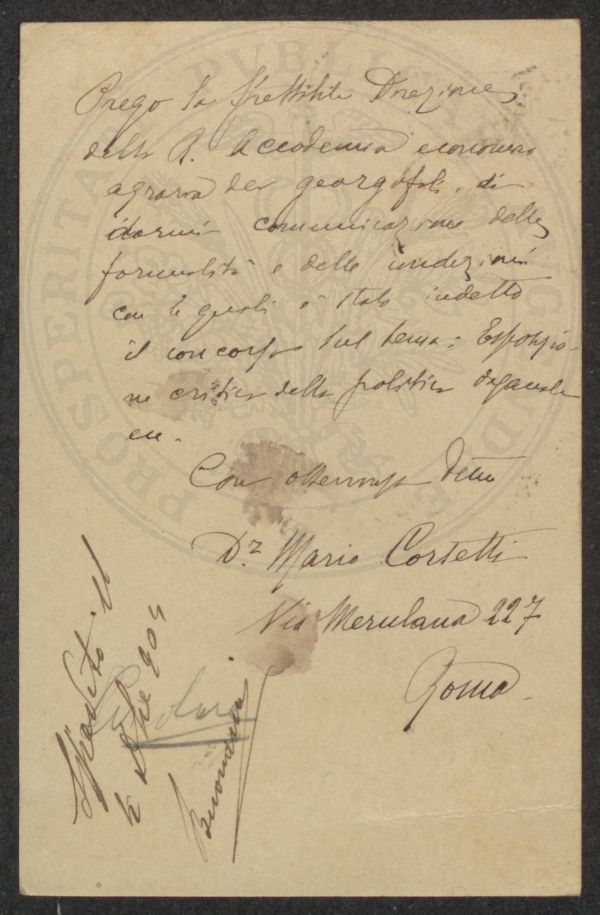 Prego la Spettabile Direzione
della R. Accademia economico
agraria dei georgofili, di
darmi comunicazione delle
formalità e delle condizioni
con le quali è stato indetto
il concorso sul tema: Esposizio-
ne critica della politica doganale
ecc.
Con osservanza
Dr. Mario Cortetti
Via Merulana 227
Roma
Spedito il
904
PROSPERITATI PUBLICAE AUGENDAE